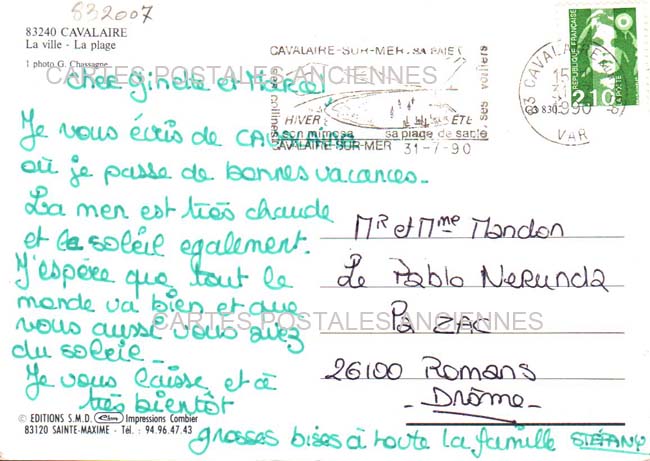 832007
83240 CAVALAIRE
La ville - La plage
1 photo G. Chassagne
CARTES POSTALES ANCIENNES
Cher Ginette et Marcel
Je vous écris de CAVALAIRE
où je passe de bonnes vacances.
La mer est très chaude
et le soleil egalement.
J'espère que tout le
monde va bien et que
vous aussi vous aiez
du soleil.
Je vous laisse et à
très bientôt
grosses bises à toute la famille STÉFANY
CAVALAIRE-SUR-MER SA BAIE
ses collines
ses voiliers
HIVER ETE
son mimosa sa plage de santé
CAVALAIRE-SUR-MER 31-7-90
83 CAVALAIRE
15
31
1990
VAR
REPUBLIQUE FRANÇAISE
LA POSTE
2,10
Mr et Mme Mandon
Le Pablo Nerunda
Pa ZAC
26100 Romans
- Drôme -
CARTES POSTALES ANCIENNES
© EDITIONS S.M.D. Impressions Combier
83120 SAINTE-MAXIME - Tél. : 94.96.47.43